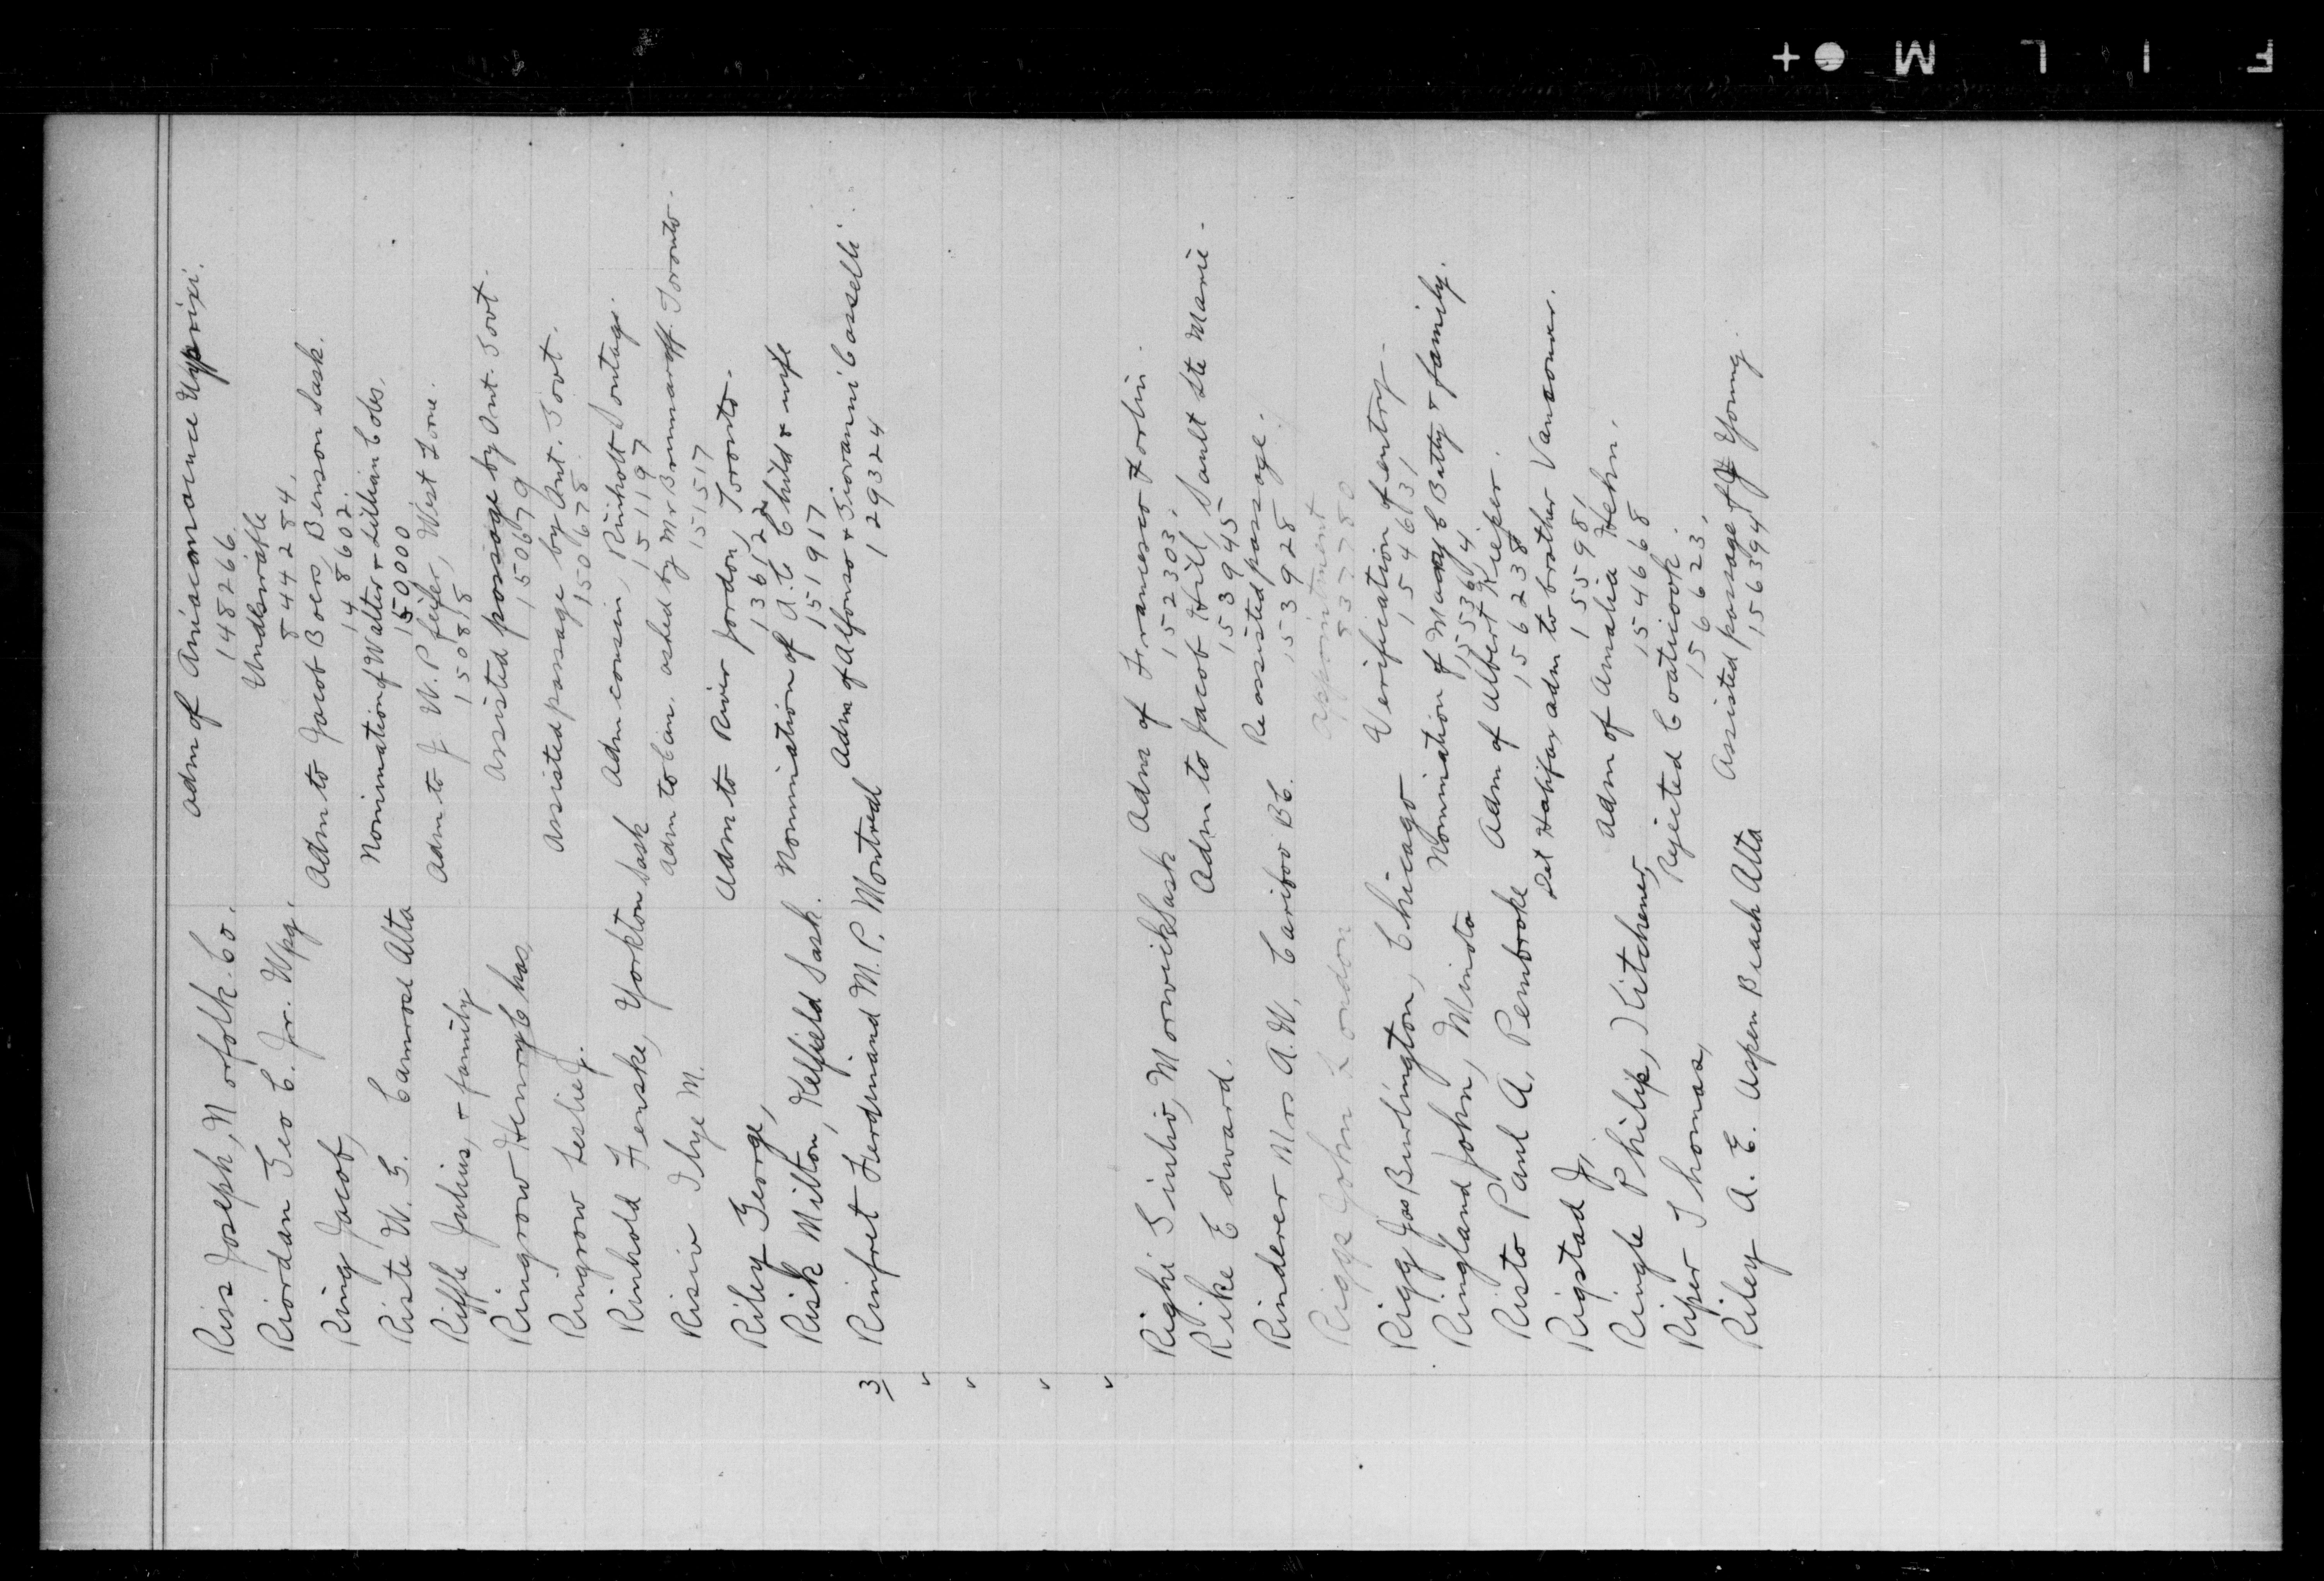 Riss Joseph, Norfolk. Co. Adm of Aniacomance Uyprixi.
148266.
Riordan Geo C. Jr. Wpg. Undesirable
844284.
Ring Jacob, Adm to Jacob Boers, Benson Sask.
148602.
Riste W. G. Camrose Alta Nomination of Walter & Lillian Cobs.
150000
Riffle Julius, & family Adm to J W. Pfeifer, West Lorne.
150818
Ringrow Henry Chas, Assisted passage by Ont. Govt.
150679
Ringrow Leslie J. Assisted passage by Ont. Govt.
150678.
Rinhold Fenske, Yorkton Sask Adm cousin, Rinholt Sontag.
151197
Risiv Ilye M. Adm to Can. asked by Mr Brummaroff Toronto.
151517
Riley George, Adm to River Jordon, Toronto.
Risk Milton, Kelfield Sask. Nomination of A. C Child & wife
151917
3/ Rinfret Ferdinand M. P. Montreal Adm of Alfonso & Giovanni Casselli
129324
"
"
"
"
Righi Giulio, Morwick Sask Adm of Francesco Forlin.
152303.
Rike Edward. Adm to Jacob Hill, Sault Ste Marie.
153945
Rinderer Mrs A. W. Cariboo BC. Re assisted passage.
153928
Riggs John London Appointment
Rigg Jas Burlington, Chicago Verification of entry.
154631
Ringland John, Miniota Nomination of Mary C Baty & family.
Risto Paul A. Pembroke Adm of Albert Rieper.
156238
Rigstad J, Det Halifax adm to brother Vancouver.
155981
Ringle Philip, Kitchener, Adm of Amalia Hehn.
154668
Riper Thomas, Rejected Coaticook.
156623.
Riley A. E. Aspen Beach Alta Assisted passage of J Young.
156394
F I L M